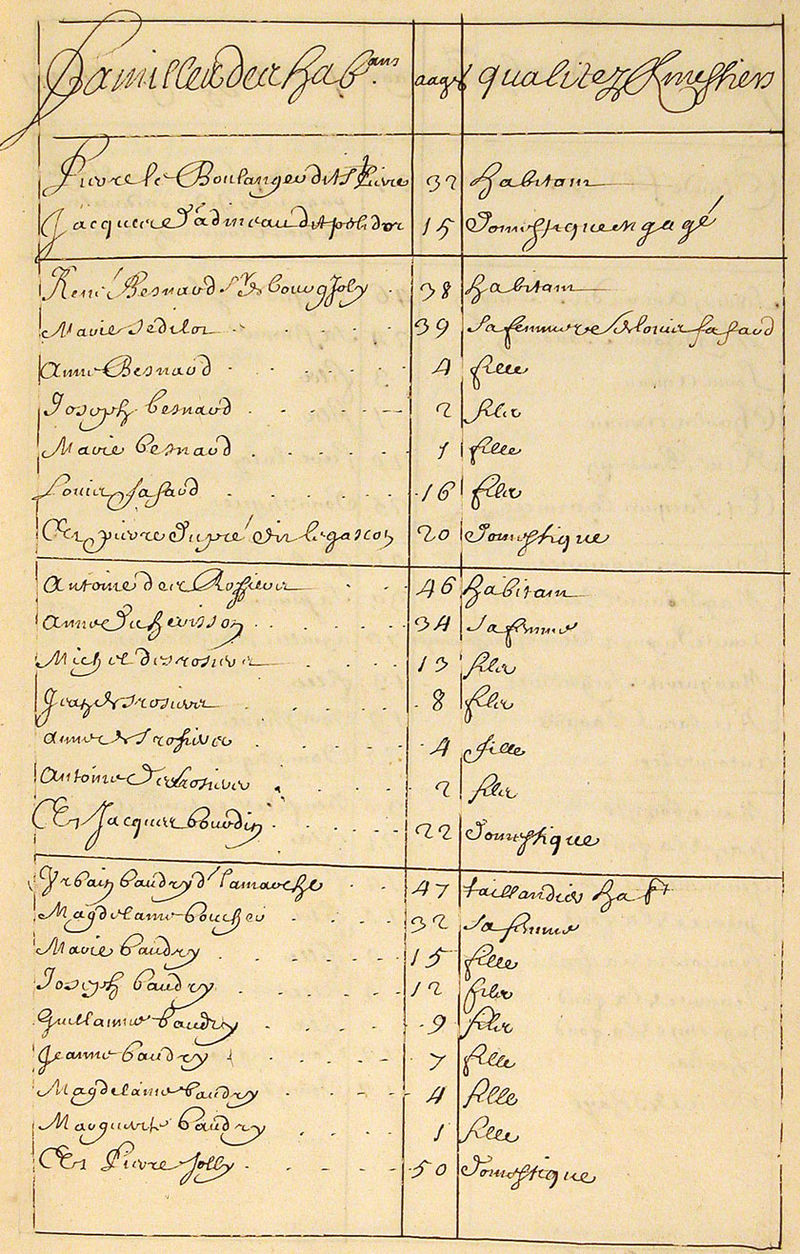 Familles des hab.ans aages qualitez & mestiers
Pierre le Boulanger dit St Pierre 32 habitant
Jacques Dadineau dit polidor 15 Domestique engagé
René Besnard Sr de bourgJoly 38 habitant
Marie Sedilot 39 sa femme ve de louis fafard
Anne Besnard 4 fille
Joseph besnard 2 fils
Marie besnard 1 fille
Louis fafard 16 fils
Et pierre Dupré dit le gascon 20 Domestique
Antoine des Rosiers 46 habitant
Anne Du herisson 34 sa femme
Michel desrosiers 13 fils
Jean desrosiers 8 fils
anne desrosiers 4 fille
Antoine Desrosiers 2 fils
Et Jacques bourdin 22 Domestique
Urbain baudry dt lamarche 47 taillandier habt
Magdelaine boucher 32 sa femme
Marie baudry 15 fille
Joseph baudry 12 fils
Guillaume baudry 9 fils
Jeanne baudry 7 fille
Magdelaine baudry 4 fille
Marguerite baudry 1 fille
Et Pierre Jolly 50 Domestique